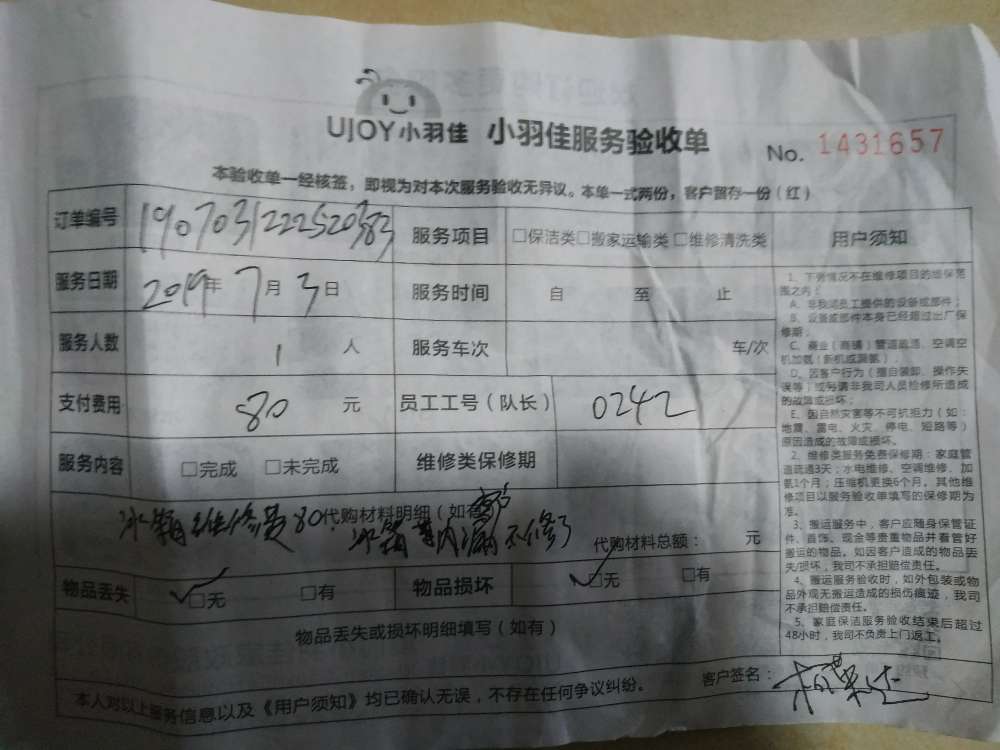 UJOY小羽佳 小羽佳服务验收单 No. 1431657
本验收单一经核签，即视为对本次服务验收无异议。本单一式两份，客户留存一份（红）
订单编号 1907031222520383 服务项目 □保洁类□搬家运输类□维修清洗类
服务日期 2019年7月3日 服务时间 自 至 止
服务人数 1 人 服务车次 车/次
支付费用 80 元 员工工号（队长） 0242
服务内容 □完成 □未完成 维修类保修期
代购材料明细（如有）
冰箱维修费80. 冰箱 内漏不修了 代购材料总额： 元
物品丢失 ✓□无 □有 物品损坏 ✓□无 □有
物品丢失或损坏明细填写（如有）
本人对以上服务信息以及《用户须知》均已确认无误，不存在任何争议纠纷。 客户签名：
用户须知
1、下旁情况不在维修项目的维保范
围之内：
A、非我司员工提供的设备或部件；
B、设备或部件本身已经超过出厂保
修期；
C、商业（商铺）管道疏通、空调空
机加氨（新机或漏氨）.
D、因客户行为（擅自装卸、操作失
误等）或另请非我司人员检修所造成
的故障或损坏；
E、因自然灾害等不可抗拒力（如：
地震、雷电、火灾、停电、短路等）
原因造成的故障或损坏。
2、维修类服务免费保修期：家庭管
道疏通3天；水电维修、空调维修、加
氨1个月；压缩机更换6个月。其他维
修项目以服务验收单填写的保修期为
准。
3、搬运服务中，客户应随身保管证
件、首饰、现金等贵重物品并看管好
搬运的物品。如因客户造成的物品丢
失/损坏，我司不承担赔偿责任。
4、搬运服务验收时，如外包装或物
品外观无搬运造成的损伤痕迹，我司
不承担赔偿责任。
5、家庭保洁服务验收结束后超过
48小时，我司不负责上门返工。